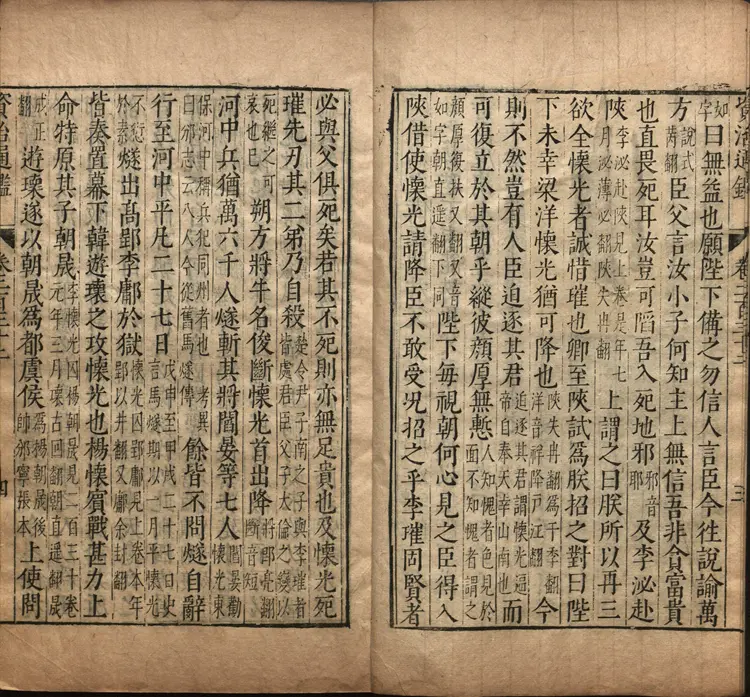 資治通鑑 卷二百三十二 三
如字曰無益也願陛下備之勿信人言臣今往說諭萬
方說式芮翻臣父言汝小子何知主上無信吾非貪富貴
也直畏死耳汝豈可䧟吾入死地邪邪音耶及李泌赴
陝李泌赴陝見上卷是年七月泌薄必翻陝失冉翻上謂之曰朕所以再三
欲全懷光者誠惜璀也卿至陝試爲朕招之對曰陛
下未幸梁洋懷光猶可降也陝失冉翻爲于季翻洋音祥降戶江翻今
則不然豈有人臣迫逐其君迫逐其君謂懷光逼帝自奉天幸山南也而
可復立於其朝乎縱彼顔厚無慙人知愧者色見於面不知愧者謂之
顔厚復扶又翻又音如字朝直遥翻下同陛下每視朝何心見之臣得入
陝借使懷光請降臣不敢受况招之乎李璀固賢者
必與父俱死矣若其不死則亦無足貴也及懷光死
璀先刃其二弟乃自殺楚令尹子南之子與李璀者皆處君臣父子大倫之變以
死繼之可哀也已朔方將牛名俊斷懷光首出降將即亮翻斷音短
河中兵猶萬六千人燧斬其將閻晏等七人閻晏勸懷光東
保河中稱兵犯同州者也考異曰邠志云八人今從舊馬燧傳餘皆不問燧自辭
行至河中平凡二十七日戊申至甲戌二十七日史言馬燧期以一月平懷光
不愆外奏燧出高郢李鄘於獄懷光囚郢鄘見上卷本年郢以井翻鄘余封翻
皆奏置幕下韓遊瓌之攻懷光也楊懷賓戰甚力上
命特原其子朝晟李懷光囚楊朝晟見二百三十卷元年三月瓌古回翻朝直遥翻晟
成正翻遊瓌遂以朝晟爲都虞侯爲楊朝晟後帥邠寧張本上使問
資治通鑑 卷二百三十二 四